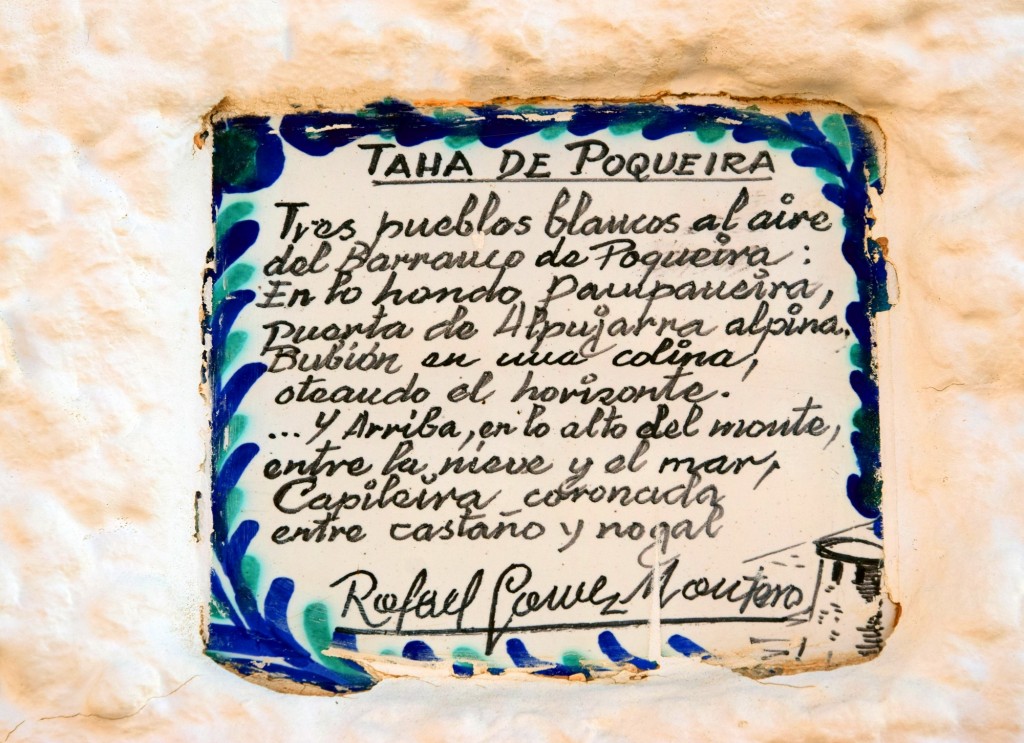 TAHA DE POQUEIRA
Tres pueblos blancos al aire
del Barranco de Poqueira :
En lo hondo, Pampaneira,
puerta de Alpujarra alpina.
Bubión en una colina,
oteando el horizonte.
... Y Arriba, en lo alto del monte,
entre la nieve y el mar,
Capileira coronada
entre castaño y nogal
Rafael Gomez Montero